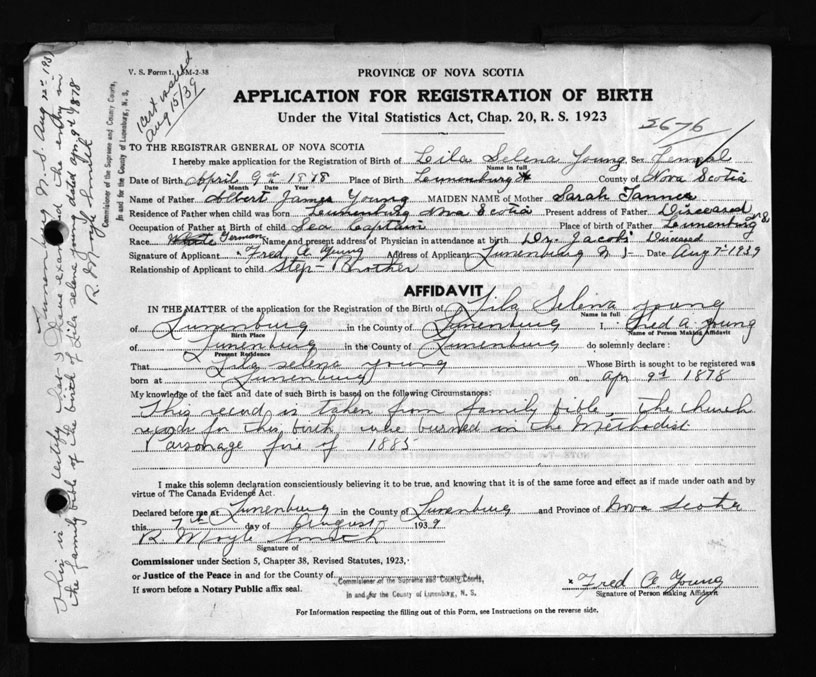 V. S. Form 1, M-2-38
PROVINCE OF NOVA SCOTIA
Cert issued
Aug 15/39
APPLICATION FOR REGISTRATION OF BIRTH
Under the Vital Statistics Act, Chap. 20, R. S. 1923
3676
TO THE REGISTRAR GENERAL OF NOVA SCOTIA
I hereby make application for the Registration of Birth of Lila Selena Young Sex Femal
Name in full
Date of Birth April 9th 1878 Place of Birth Lunenburg County of Nova Scotia
Month Date Year
Name of Father Albert James Young MAIDEN NAME of Mother Sarah Tanner
Residence of Father when child was born Lunenburg Nova Scotia Present address of Father Diseased
Occupation of Father at Birth of child Sea Captain Place of birth of Father Lunenburg N S
Race White German Name and present address of Physician in attendance at birth Dr. Jacobs Diseased
Signature of Applicant Fred A Young Address of Applicant Lunenburg N S Date Aug 7th 1939
Relationship of Applicant to child Step-Brother
AFFIDAVIT
IN THE MATTER of the application for the Registration of the Birth of Lila Selena young
Name in full
of Lunenburg in the County of Lunenburg I, Fred A. Young
Birth Place Name of Person Making Affidavit
of Lunenburg in the County of Lunenburg do solemnly declare :
Present Residence
That Lila selena young Whose Birth is sought to be registered was
born at Lunenburg on Apr 9th 1878
My knowledge of the fact and date of such Birth is based on the following Circumstances:
This record is taken from family bible, The church
records for this birth was burned in the Methodist
Parsonage fire of 1885
I make this solemn declaration conscientiously believing it to be true, and knowing that it is of the same force and effect as if made under oath and by
virtue of The Canada Evidence Act.
Declared before me at Lunenburg in the County of Lunenburg and Province of Nova Scotia
this 7th day of August 1939
R Moyle Smith
Signature of
Commissioner under Section 5, Chapter 38, Revised Statutes, 1923,
or Justice of the Peace in and for the County of
Commissioner of the Supreme and County Courts,
in and for the County of Lunenburg, N. S.
If sworn before a Notary Public affix seal.
Fred A Young
Signature of Person making Affidavit
For Information respecting the filling out of this Form, see Instructions on the reverse side.
Lunenburg N. S. Aug 22nd 193
This is to certify that I have examined the entry in
the family bible of the birth of Lila selena young dated apr 9th 1878
R Moyle Smith
Commissioner of the Supreme and County Courts,
in and for the County of Lunenburg, N. S.